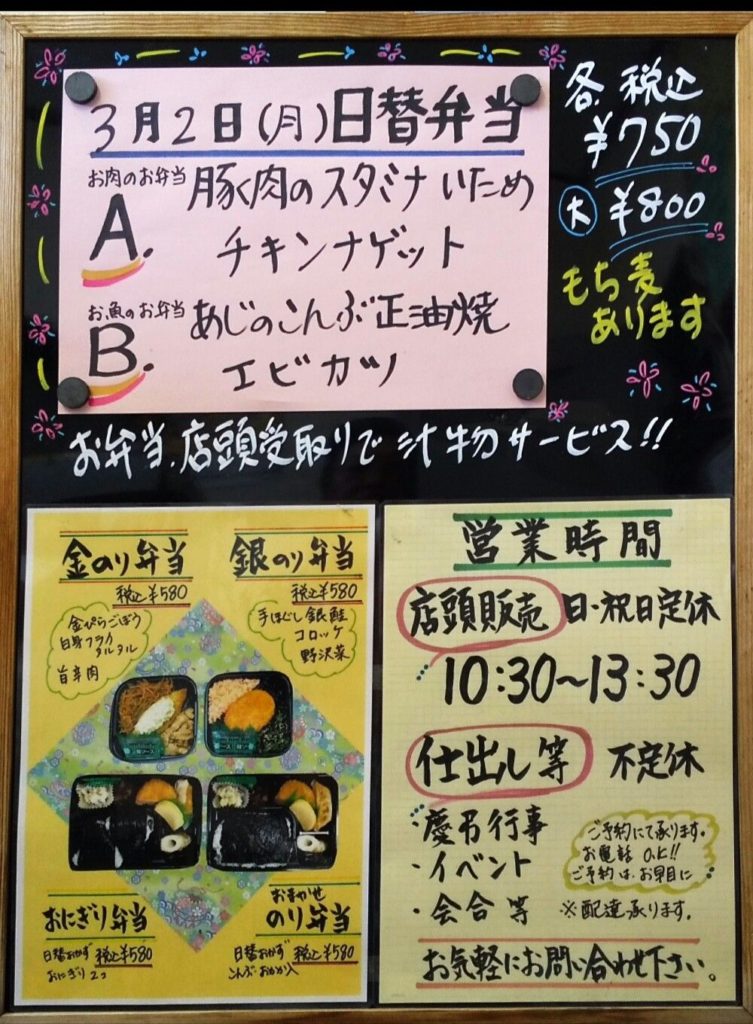 3月2日(月)日替弁当
お肉のお弁当
A. 豚肉のスタミナいため
チキンナゲット
お魚のお弁当
B. あじのこんぶ正油焼
エビカツ
各税込
¥750
大 ¥800
もち麦
あります
お弁当、店頭受取りで汁物サービス!!
金のり弁当
税込¥580
金ぴらごぼう
白身フライ
タルタル
旨辛肉
銀のり弁当
税込¥580
手ほぐし銀鮭
コロッケ
野沢菜
おにぎり弁当
日替おかず 税込¥580
おにぎり2コ
おまかせ
のり弁当
日替おかず 税込¥580
こんぶ・おかか入
営業時間
店頭販売 日・祝日定休
10:30~13:30
仕出し等 不定休
・慶弔行事
・イベント
・会合等
ご予約にて承ります。
お電話O.K!!
ご予約は、お早目に
※配達承ります。
お気軽にお問い合わせ下さい。